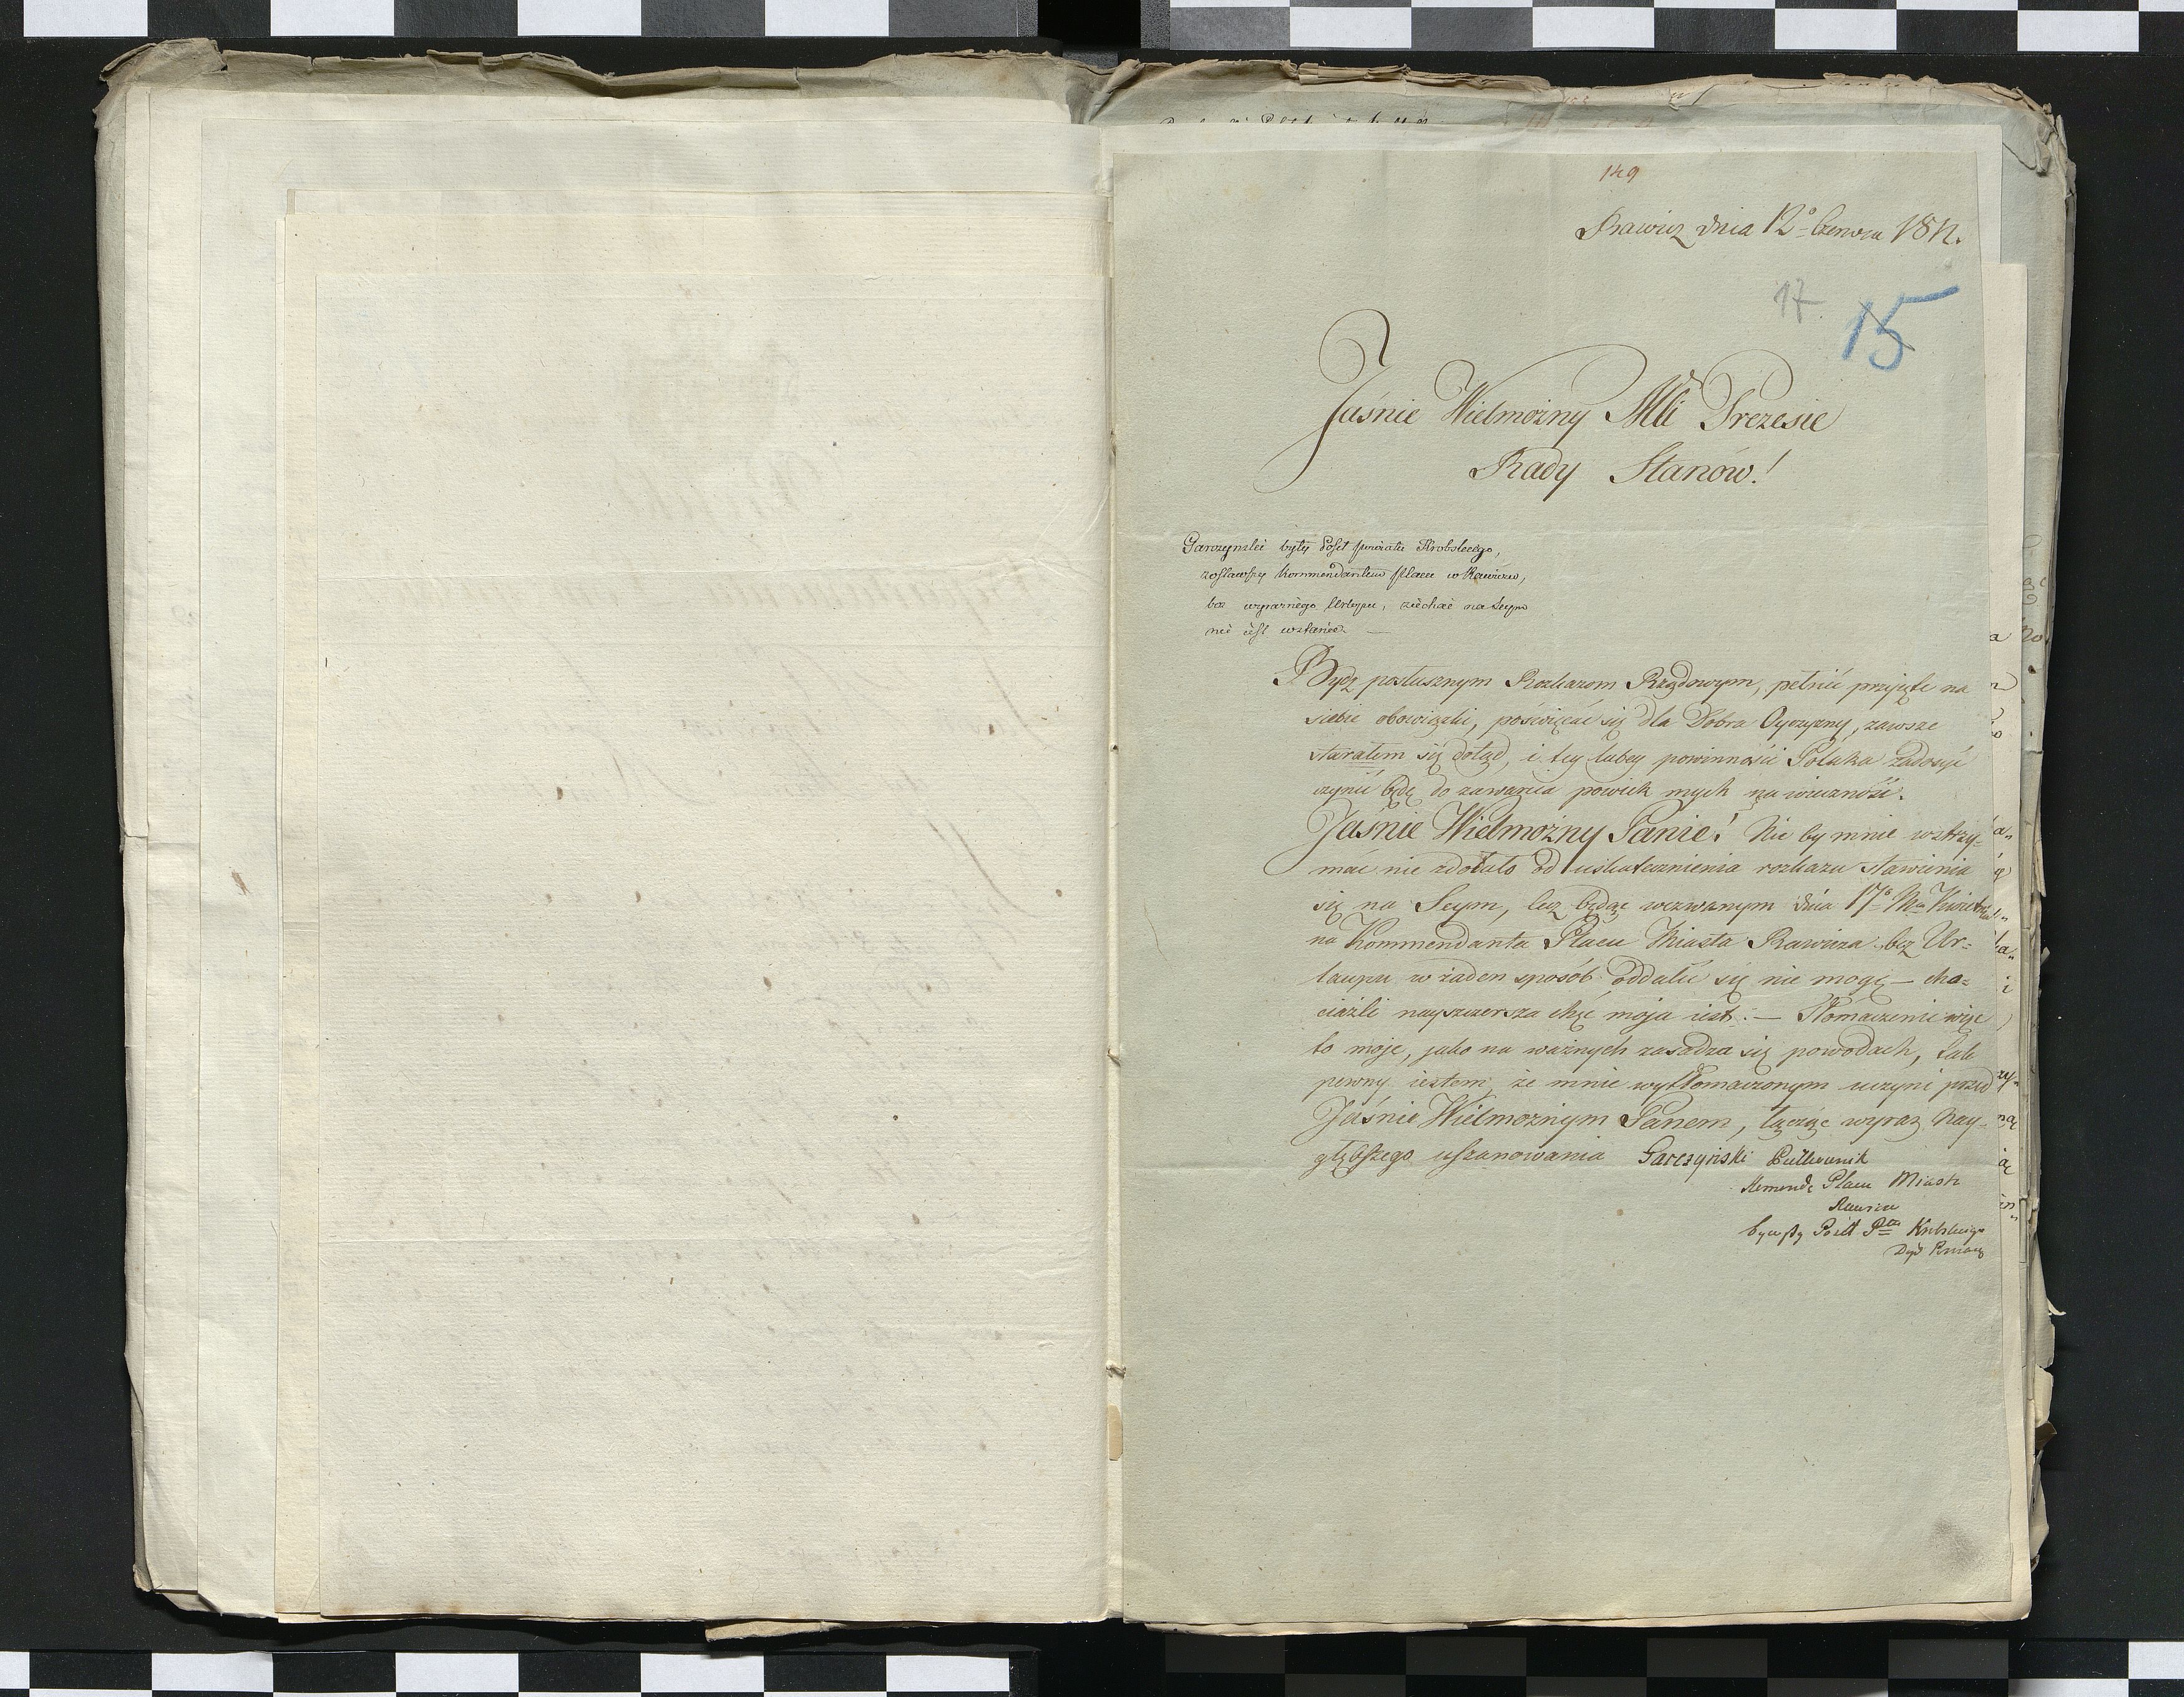 149
Rawicz dnia 12º Czerwca 1812.
17
15
Jaśnie Wielmożny Mci Prezesie
Rady Stanów!
Garczynski były Poseł powiatu Krobskiego,
zostawszy Kommendantem placu w Rawiczu,
bez wyraznego Urlopu, ziechać na Seym
nie iest wstanie. —
Bydz posłusznym Rozkazom Rządowym, pełnić przyięte na
siebie obowiązki, poświęcać się dla Dobra Oyczyzny, zawsze
starałem się dotąd, i tey lubey powinności Polaka zadosyć
czynić będę do zawarcia powiek mych na wieczność.
Jaśnie Wielmożny Panie! Nic by mnie wstrzy=
mać nie zdołało od uskutecznienia rozkazu stawienia
się na Seym, lecz będąc wezwanym dnia 17º Ma
na Kommendanta Placu Miasta Rawicza, bez Ur=
laupu w żaden sposób oddalić się nie mogę — cho=
ciażli nayszczersza chęć moja iest. — Tłomaczenie więc
to moje, jako na ważnych zasadza się powodach, tak
pewny iestem, że mnie wytłomaczonym uczyni przed
Jaśnie Wielmożnym Panem, łącząc wyraz nay=
głębszego uszanowania Garczyński Pułkownik
Komendt Placu Miasta
Rawicza
bywszy Poseł Ptu Krobskiego